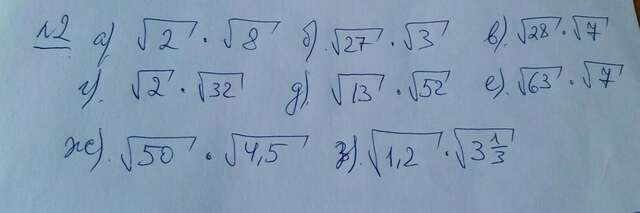 №2 а) √2 · √8 б). √27 · √3 в). √28 · √7
г). √2 · √32 д). √13 · √52 е). √63 · √7
ж). √50 · √4,5 з). √1,2 · √3 1/3